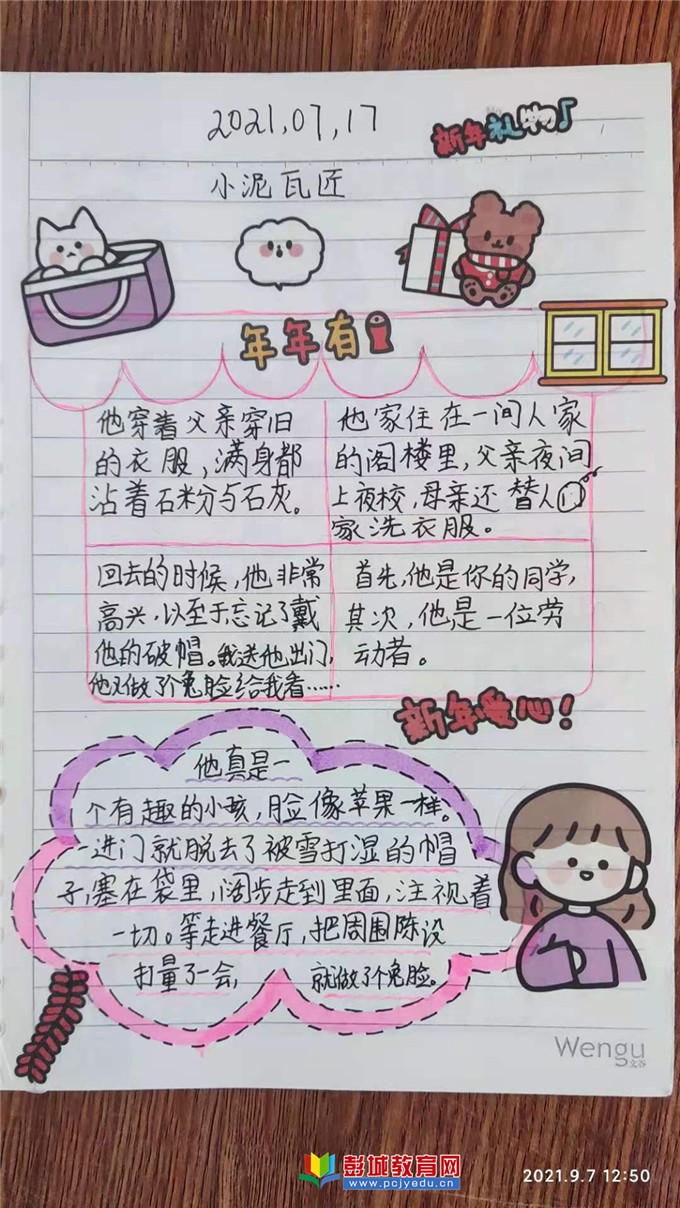 2021,07,17
新年礼物
小泥瓦匠
年年有
他穿着父亲穿旧
的衣服，满身都
沾着石粉与石灰。
他家住在一间人家
的阁楼里，父亲夜间
上夜校，母亲还替人
家洗衣服。
回去的时候，他非常
高兴，以至于忘记了戴
他的破帽。我送他出门，
他又做了个兔脸给我看……
首先，他是你的同学，
其次，他是一位劳
动者。
新年爱心！
他真是一
个有趣的小孩，脸像苹果一样。
一进门就脱去了被雪打湿的帽
子，塞在袋里，阔步走到里面，注视着
一切。等走进餐厅，把周围陈设
打量了一会，就做了个兔脸。
Wengu
文谷
彭城教育网
www.pcjyedu.cn
2021.9.7 12:50